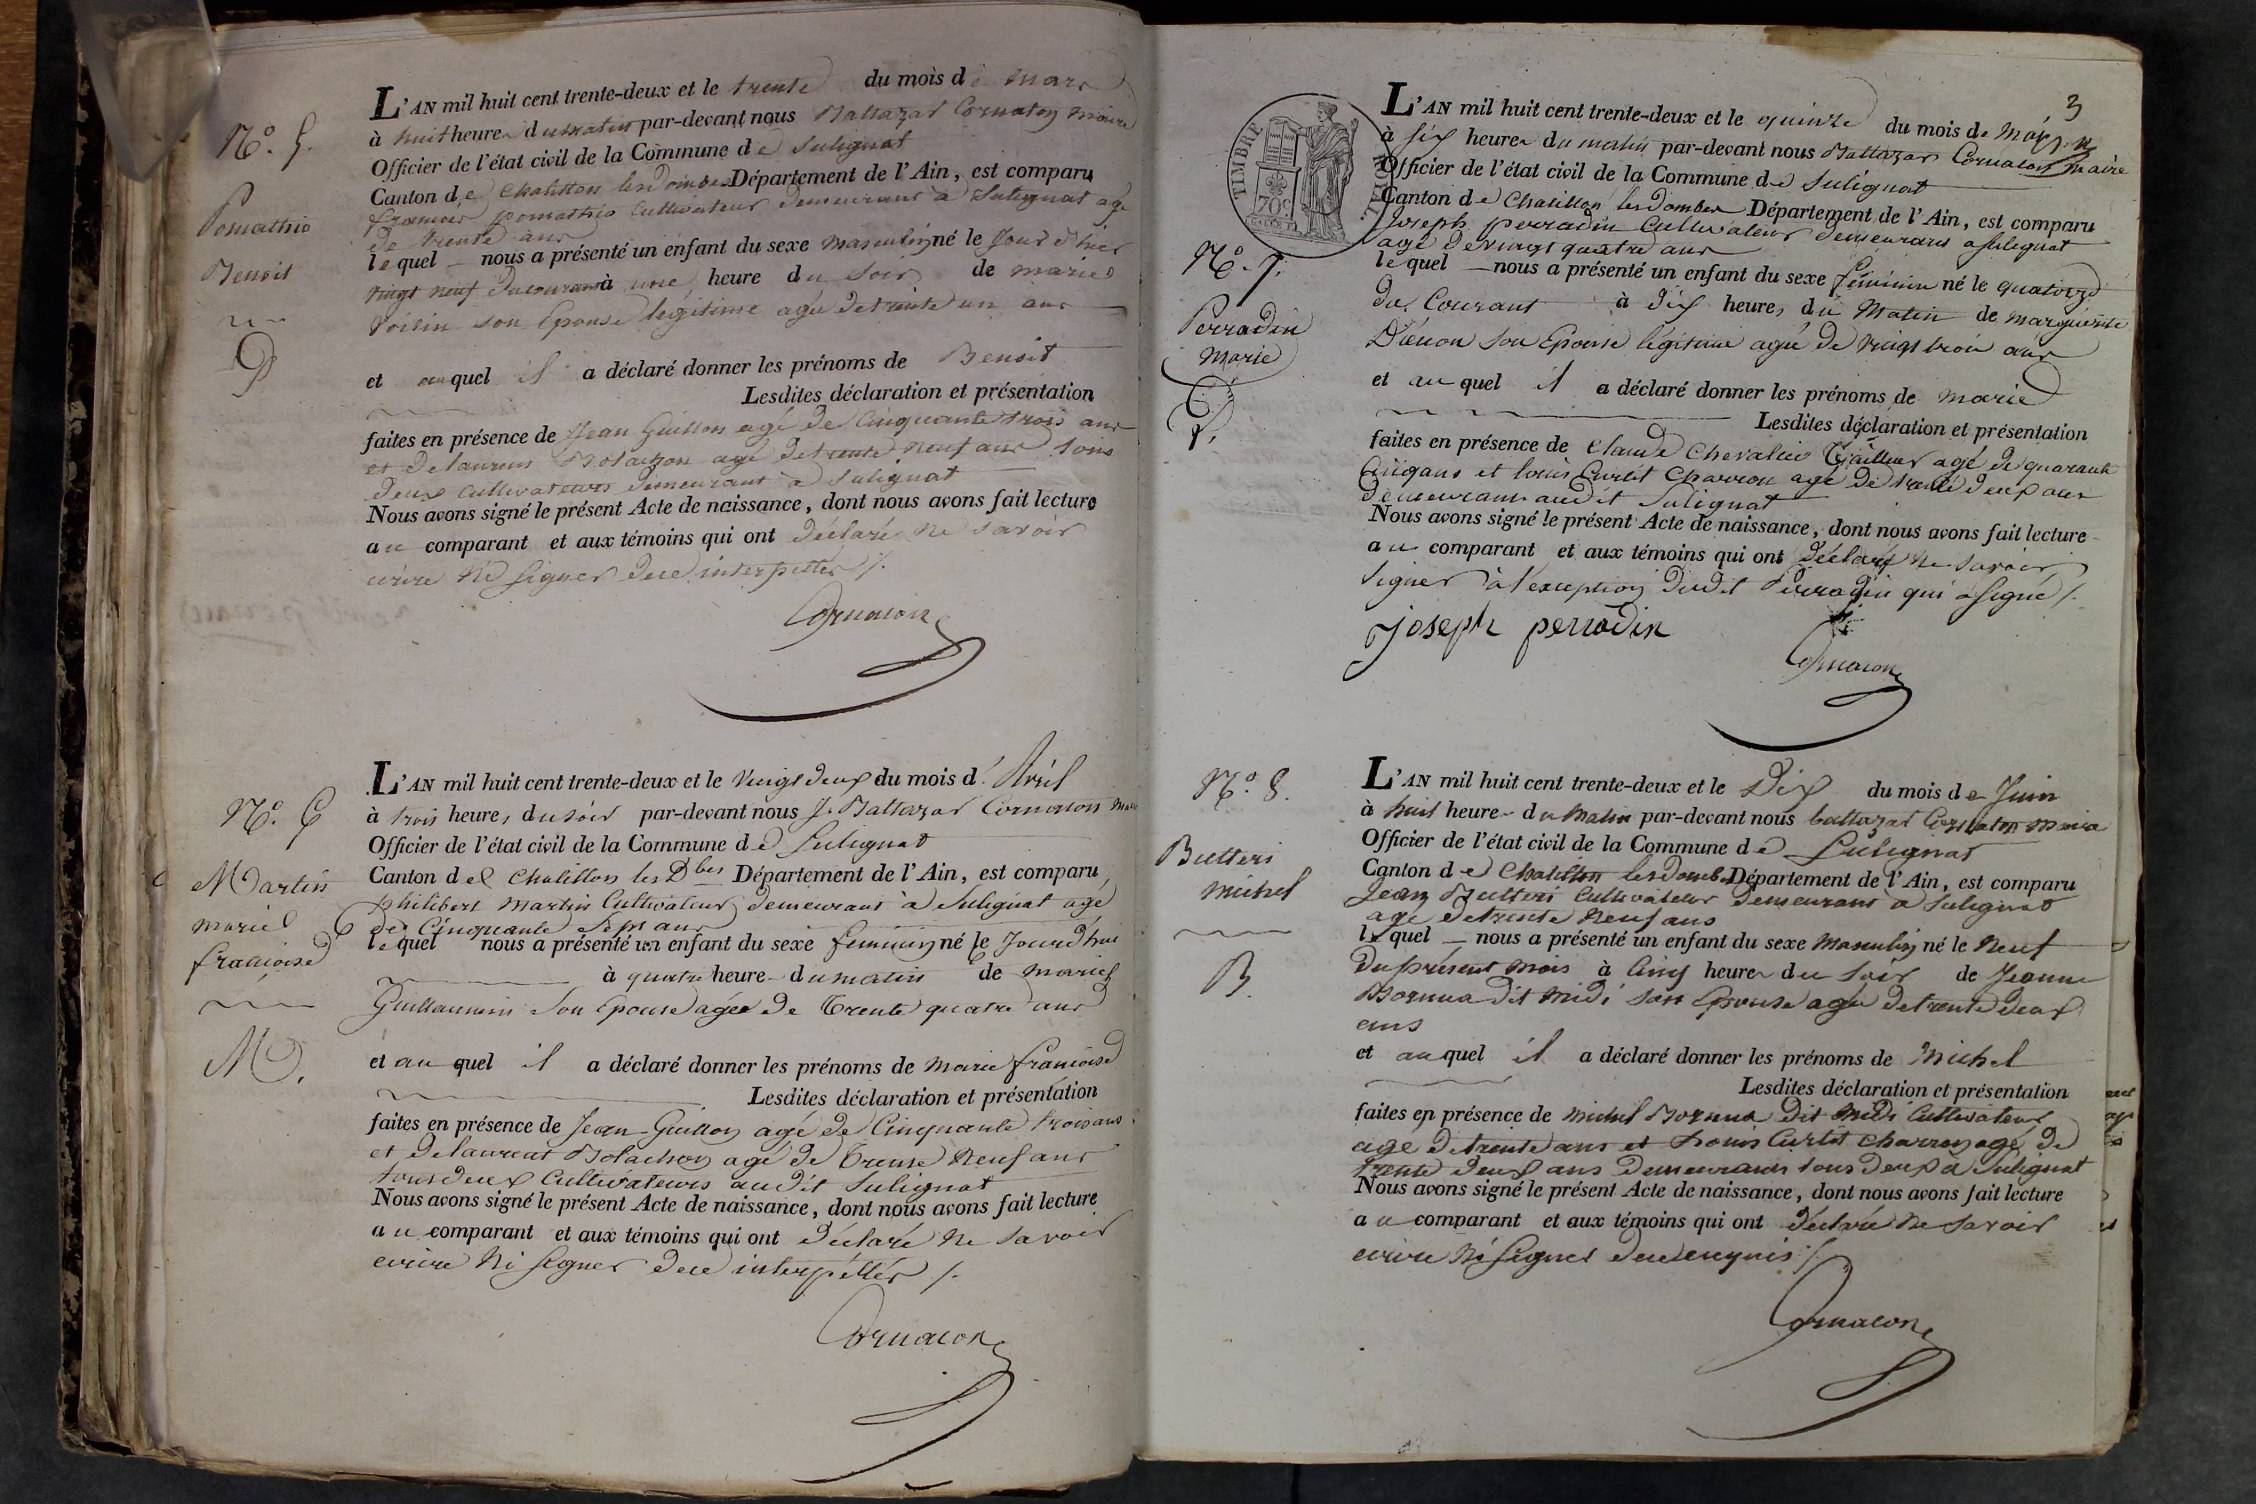 N.° 5.
Pomathio
Benoit
P
L'AN mil huit cent trente-deux et le trente du mois de Mars
à huit heures du matin par-devant nous Baltazar Cornaton Maire
Officier de l'état civil de la Commune de Sulignat
Canton de Chatillon les dombes Département de l'Ain, est comparu
francois pomathio Cultivateur demeurant à Sulignat agé
de trente ans
lequel nous a présenté un enfant du sexe masculin né le Jour d'hier
vingt neuf du courant à une heure du Soir de marie
Voisin son Epouse légitime agée de trente un ans
et auquel il a déclaré donner les prénoms de Benoit
Lesdites déclaration et présentation
faites en présence de Jean Guillon agé de Cinquante trois ans
et de laurent Bolachon agé de trente neuf ans tous
deux cultivateurs demeurant à Sulignat
Nous avons signé le présent Acte de naissance, dont nous avons fait lecture
au comparant et aux témoins qui ont déclaré ne savoir
écrire ni signer de ce interpellés /.
Cornaton
N.° 6
Martin
marie
francoise
M.
L'AN mil huit cent trente-deux et le vingt deux du mois d' Avril
à trois heures du soir par-devant nous J. Baltazar Cornaton Maire
Officier de l'état civil de la Commune de Sulignat
Canton de Chatillon les Dbes Département de l'Ain, est comparu
philibert Martin Cultivateur demeurant à Sulignat agé
de Cinquante Sept ans
lequel nous a présenté un enfant du sexe feminin né le Jourd'hui
à quatre heures du matin de marie
Guillaumin son Epouse agée de trente quatre ans
et auquel il a déclaré donner les prénoms de marie francoise
Lesdites déclaration et présentation
faites en présence de Jean Guillon agé de Cinquante trois ans
et de laurent Bolachon agé de trente neuf ans
tous deux Cultivateurs audit Sulignat
Nous avons signé le présent Acte de naissance, dont nous avons fait lecture
au comparant et aux témoins qui ont déclaré ne savoir
ecrire ni signer de ce interpellés /.
Cornaton
3
TIMBRE ROYAL
70c.
N.° 7.
Perradin
Marie
P.
L'AN mil huit cent trente-deux et le quinze du mois de
à six heures du matin par-devant nous Baltazar Cornaton maire
Officier de l'état civil de la Commune de Sulignat
Canton de Chatillon les dombes Département de l'Ain, est comparu
Joseph perradin Cultivateur demeurant a Sulignat
agé de vingt quatre ans
lequel nous a présenté un enfant du sexe féminin né le quatorze
du Courant à dix heures du Matin de marguerite
son Epouse légitime agée de vingt trois ans
et auquel il a déclaré donner les prénoms de marie
Lesdites déclaration et présentation
faites en présence de Claude Chevalier Tailleur agé de quarante
Cinq ans et louis Curtit Charron agé de trente deux ans
demeurant audit Sulignat
Nous avons signé le présent Acte de naissance, dont nous avons fait lecture
au comparant et aux témoins qui ont déclaré ne savoir
signer à l'exception dudit Perradin qui a signé /.
joseph perradin
Cornaton
N.° 8.
Butteri
michel
B.
L'AN mil huit cent trente-deux et le Dix du mois de Juin
à huit heures du Matin par-devant nous baltazar Cornaton maire
Officier de l'état civil de la Commune de Sulignat
Canton de Chatillon les dombes Département de l'Ain, est comparu
Jean Butteri Cultivateur demeurant a Sulignat
agé de trente neuf ans
lequel nous a présenté un enfant du sexe Masculin né le Neuf
du présent mois à Cinq heures du Soir de Jeanne
dit Midi son Epouse agée de trente deux
ans
et auquel il a déclaré donner les prénoms de Michel
Lesdites déclaration et présentation
faites en présence de michel dit Midi Cultivateur
agé de trente ans et Louis Curtit Charron agé de
trente deux ans demeurants tous deux à Sulignat
Nous avons signé le présent Acte de naissance, dont nous avons fait lecture
au comparant et aux témoins qui ont déclaré ne savoir
ecrire ni signer de ce enquis /.
Cornaton